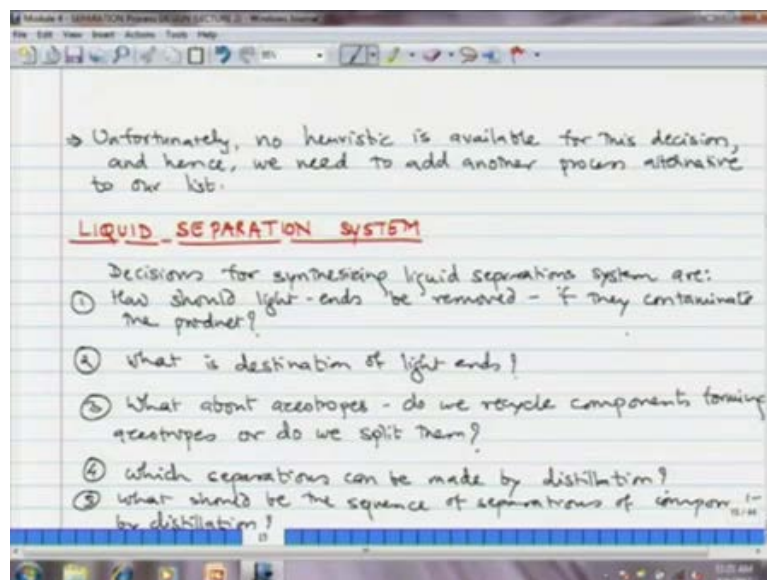 Module 4 - SEPARATION Process DESIGN (LECTURE 2) - Windows Journal
File Edit View Insert Actions Tools Help
→ Unfortunately, no heuristic is available for this decision,
and hence, we need to add another process alternative
to our list.
LIQUID SEPARATION SYSTEM
Decisions for synthesizing liquid separations system are:
① How should light-ends be removed - if they contaminate
the product?
② What is destination of light ends?
③ What about azeotropes - do we recycle components forming
azeotropes or do we split them?
④ Which separations can be made by distillation?
⑤ What should be the sequence of separations of compon
by distillation?